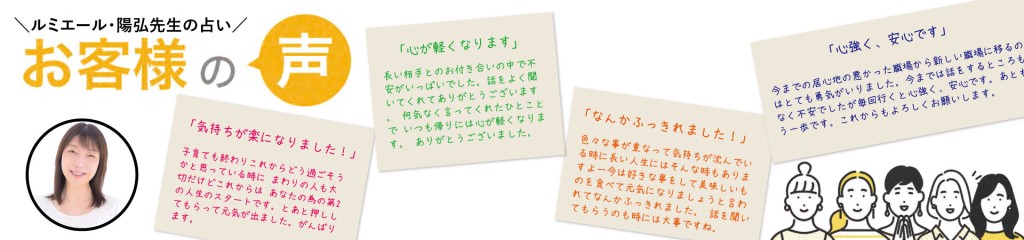 ＼ルミエール・陽弘先生の占い／
お客様の声
「気持ちが楽になりました！」
子育ても終わりこれからどう過ごそう
かと思っている時に まわりの人も大
切だけどこれからは あなたの為の第2
の人生のスタートです。とあと押しし
てもらって元気が出ました。がんばり
ます。
「心が軽くなります」
長い相手とのお付き合いの中で不
安がいっぱいでした。話をよく聞
いてくれてありがとうございます
。 何気なく言ってくれたひとこと
で いつも帰りには心が軽くなりま
す。 ありがとうございました。
「なんかふっきれました！」
色々な事が重なって気持ちが沈んでい
る時に長い人生にはそんな時もありま
すよー今は好きな事をして美味しいも
のを食べて元気になりましょうと言わ
れてなんかふっきれました。 話を聞い
てもらうのも時には大事ですね。
「心強く、安心です」
今までの居心地の悪かった職場から新しい職場に移るの
はとても勇気がいりました。今までは話をするところも
なく不安でしたが毎回行くと心強く、安心です。あとも
う一歩です。これからもよろしくお願いします。